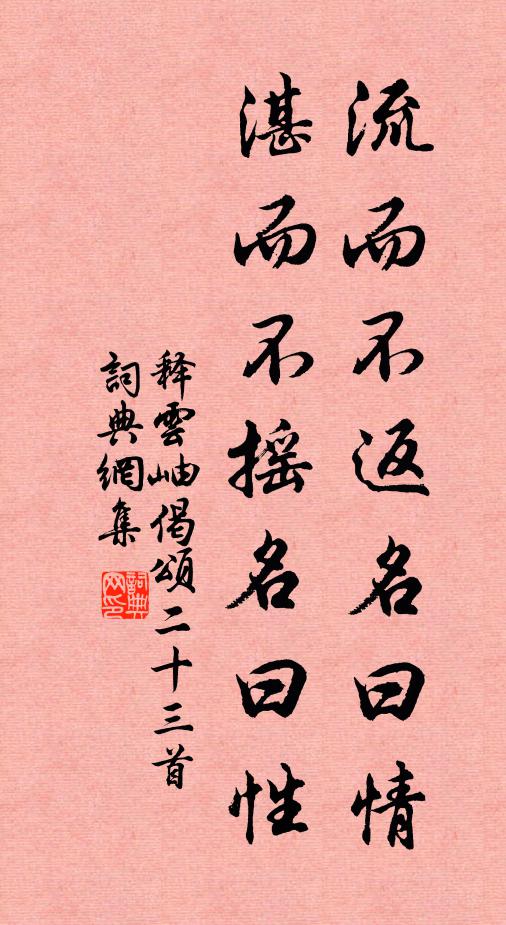 流而不返名曰情
湛而不摇名曰性
释雲岫偈頌二十三首
詞典網集
詞典网印